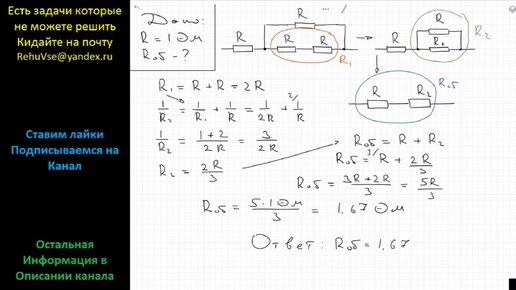 Есть задачи которые
не можете решить
Кидайте на почту
RehuVse@yandex.ru
Ставим лайки
Подписываемся на
Канал
Остальная
Информация в
Описании канала
Дано:
R = 1 Ом
Rоб - ?
R
R
R R
R₁
R
R
R₁
R₂
Rоб
R R₂
R₁ = R + R = 2R
1/R₂ = 1/R₁ + 1/R = 1/2R + 1/R
1/R₂ = (1+2)/2R = 3/2R
R₂ = 2R/3
Rоб = R + R₂
Rоб = R + 2R/3
Rоб = (3R+2R)/3 = 5R/3
Rоб = 5·1 Ом/3 = 1,67 Ом
Ответ: Rоб = 1,67